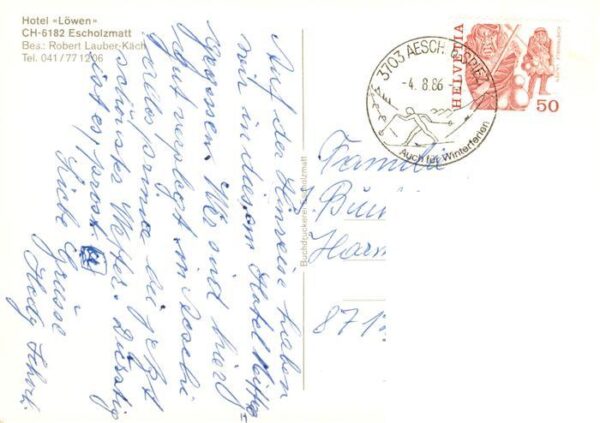 Hotel «Löwen»
CH-6182 Escholzmatt
Bes.: Robert Lauber-Käch
Tel. 041/771206
Auf der Hinreise haben
wir in diesem Hotel Mittag
gegessen. Wir sind hier
gut verpflegt in Aeschi
schönstes Wetter. Durstig
ist es, prost
Liebe Grüsse
Hedy
Buchdruckerei Escholzmatt
3703 AESCHI B. SPIEZ
-4. 8.86-
Auch für Winterferien
HELVETIA
50
Familie
871